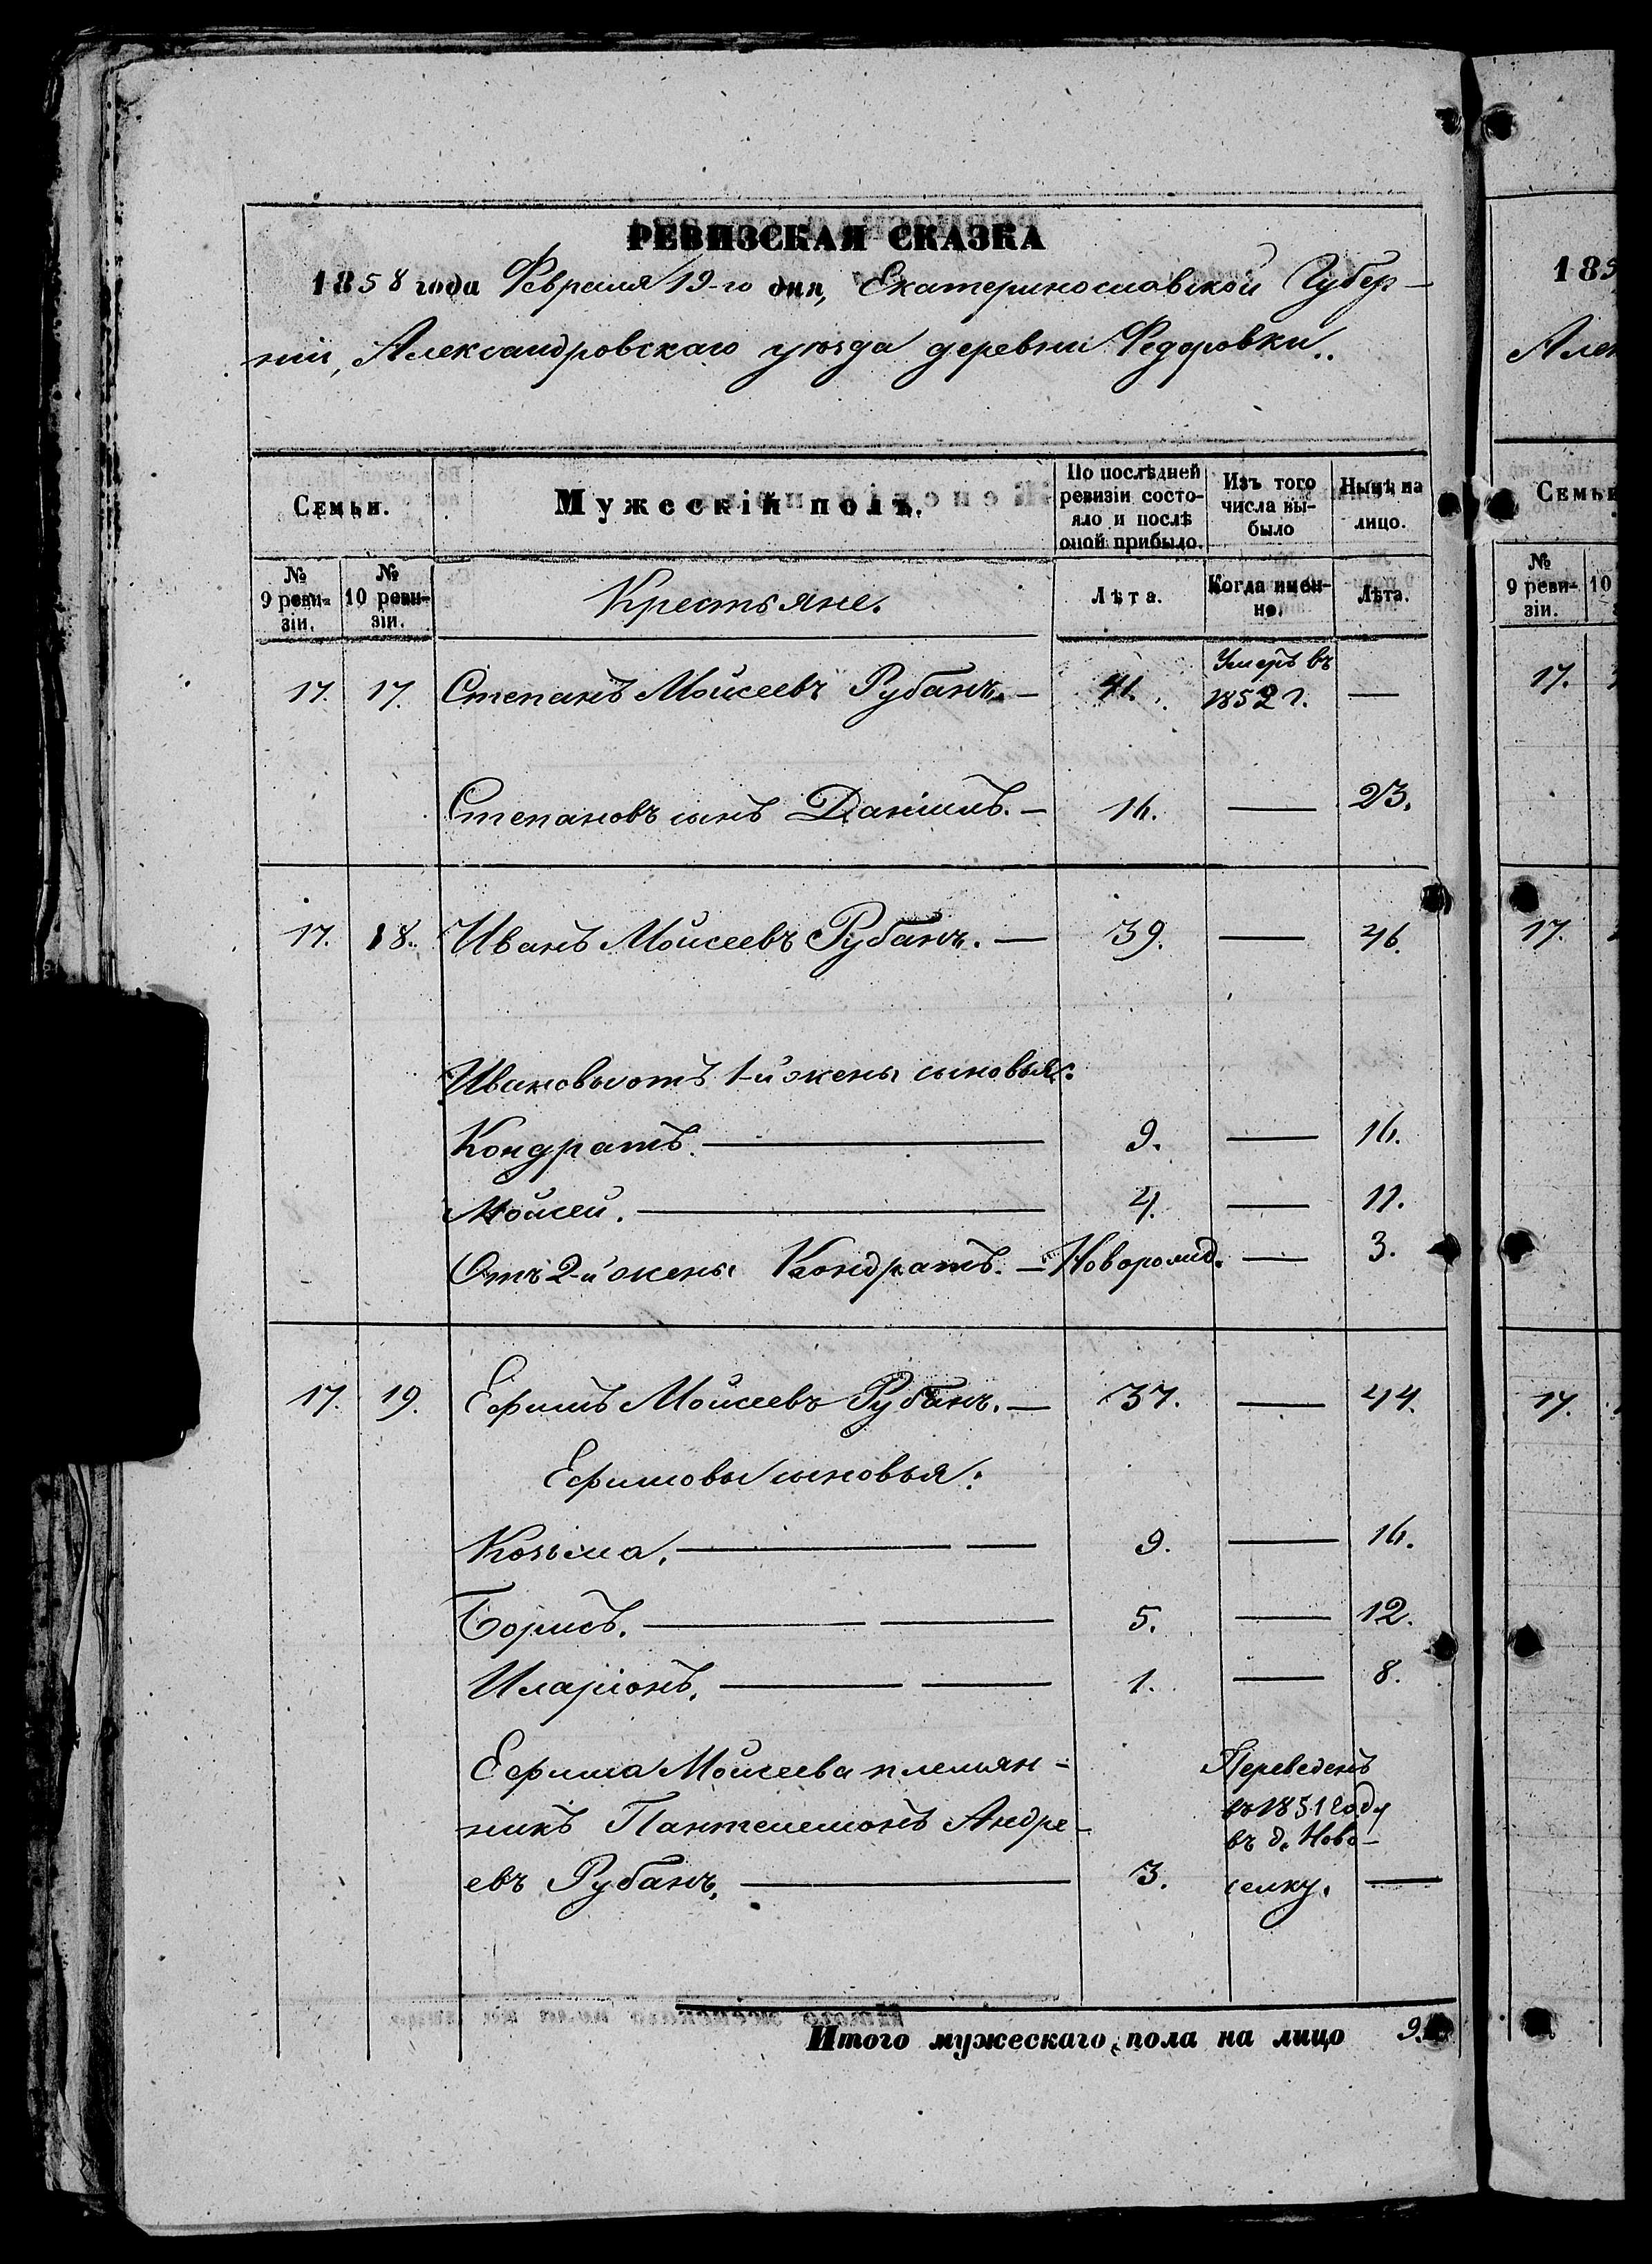 РЕВИЗСКАЯ СКАЗКА
1858 года Февраля 19-го дня, Екатеринославской Губер-
нии, Александровскаго уѣзда деревни Федоровки.
Семьи. Мужескій полъ. По послѣдней ревизіи состояло и послѣ оной прибыло. Изъ того числа выбыло Нынѣ на лицо.
№ 9 ревизіи. № 10 ревизіи. Крестьяне. Лѣта. Когда именно. Лѣта.
17. 17. Степанъ Мойсеевъ Рубанъ. — 41. Умеръ въ 1852 г. —
Степановъ сынъ Даніилъ. — 16. — 23.
17. 18. Иванъ Мойсеевъ Рубанъ. — 39. — 46.
Ивановы отъ 1-й жены сыновья:
Кондратъ. — 9. — 16.
Мойсей. — 4. — 11.
Отъ 2-й жены Кондратъ. — Новорожд. — 3.
17. 19. Ефимъ Мойсеевъ Рубанъ. — 37. — 44.
Ефимовы сыновья:
Козьма. — — 9. — 16.
Борисъ. — — 5. — 12.
Иларіонъ. — — 1. — 8.
Ефима Мойсеева племян-
никъ Пантелемонъ Андре-
евъ Рубанъ. — 3. —
Переведенъ
въ 1851 году
въ д. Ново-
селку.
Итого мужескаго пола на лицо 9.
185
Але
Семьи
№ 9 ревизіи. 10
17.
17.
17.